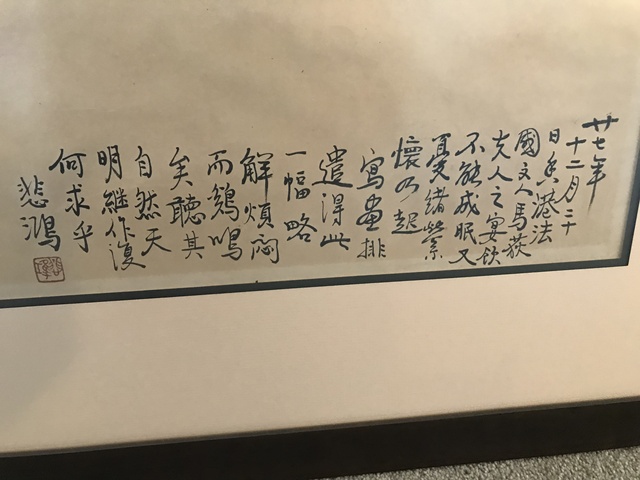 廿七年
十二月二十
日香港法
國文人馬荻
夫人之宴飲
不能成眠又
憂緒縈
懷乃起
寫畫排
遣得此
一幅略
解煩悶
而鷄鳴
矣聽其
自然天
明繼作復
何求乎
悲鴻